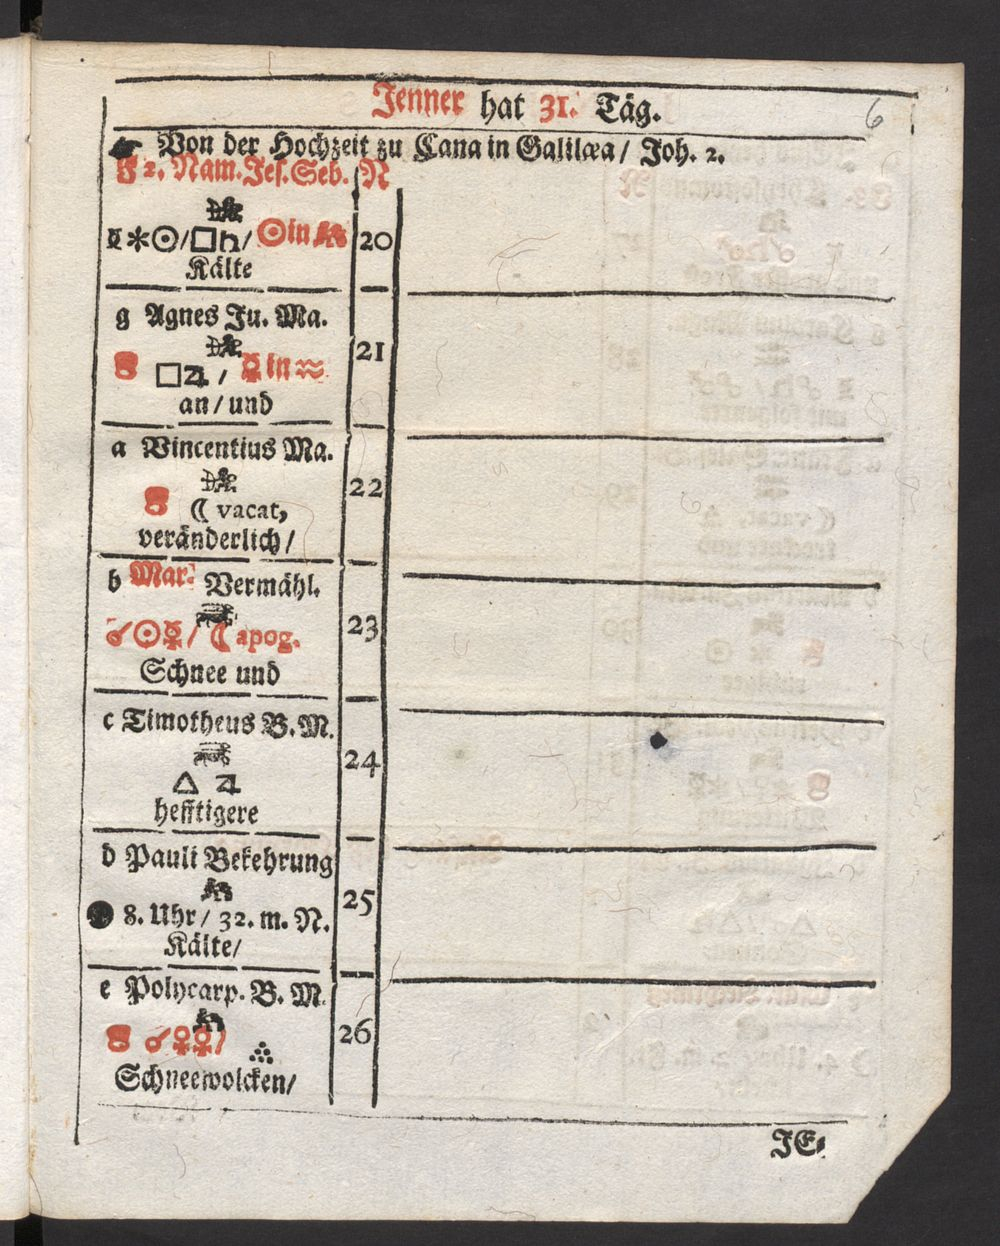 Jenner hat 31. Täg.
6
☛ Von der Hochzeit zu Cana in Galilæa / Joh. 2.
F 2. Nam. Jes. Seb. N
☿ ✶ ☉ / □ ♄ / ☉ in 20
Kälte
g Agnes Ju. Ma.
□ ♃ / ☿ in ♒ 21
an / und
a Vincentius Ma.
☾ vacat, 22
veränderlich /
b Mar. Vermähl.
☌ ☉ ☿ / ☾ apog. 23
Schnee und
c Timotheus B. M.
△ ♃ 24
hefftigere
d Pauli Bekehrung
● 8. Uhr / 32. m. N. 25
Kälte /
e Polycarp. B. M.
☌ ♀ ☿ / 26
Schneewolcken /
JE⸗